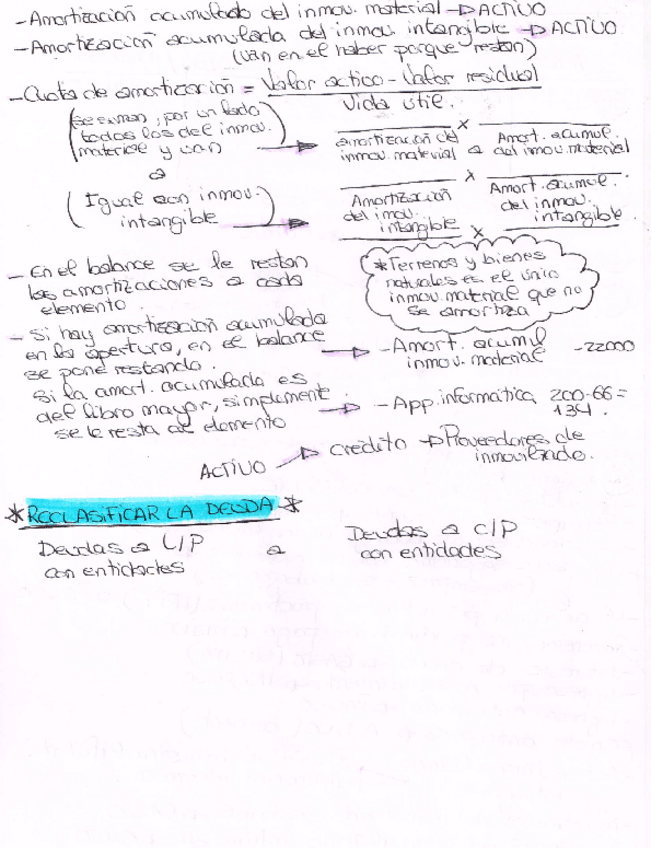 - Amortización acumulado del inmov. material → ACTIVO
- Amortización acumulada del inmov intangible → ACTIVO
(van en el haber porque restan)
- Cuota de amortización = Valor activo - Valor residual
Vida útil.
(se suman, por un lado
todas las del inmov.
material y van → amortización del inmov. material a Amort. acumul. del inmov. material
x
a
(Igual con inmov.
intangible) → Amortización del inmov. intangible
x
Amort. acumul. del inmov. intangible.
x
- En el balance se le restan
las amortizaciones a cada
elemento.
*Terrenos y bienes
naturales es el único
inmov. material que no
se amortiza
- Si hay amortización acumulada
en la apertura, en el balance
se pone restando. → - Amort. acumul inmov. material -22000
Si la amort. acumulada es
del libro mayor, simplemente
se le resta al elemento → - App. informática 200-66=
134.
ACTIVO → crédito → Proveedores de
inmovilizado.
*RECLASIFICAR LA DEUDA*
Deudas a L/P a Deudas a C/P
con entidades con entidades